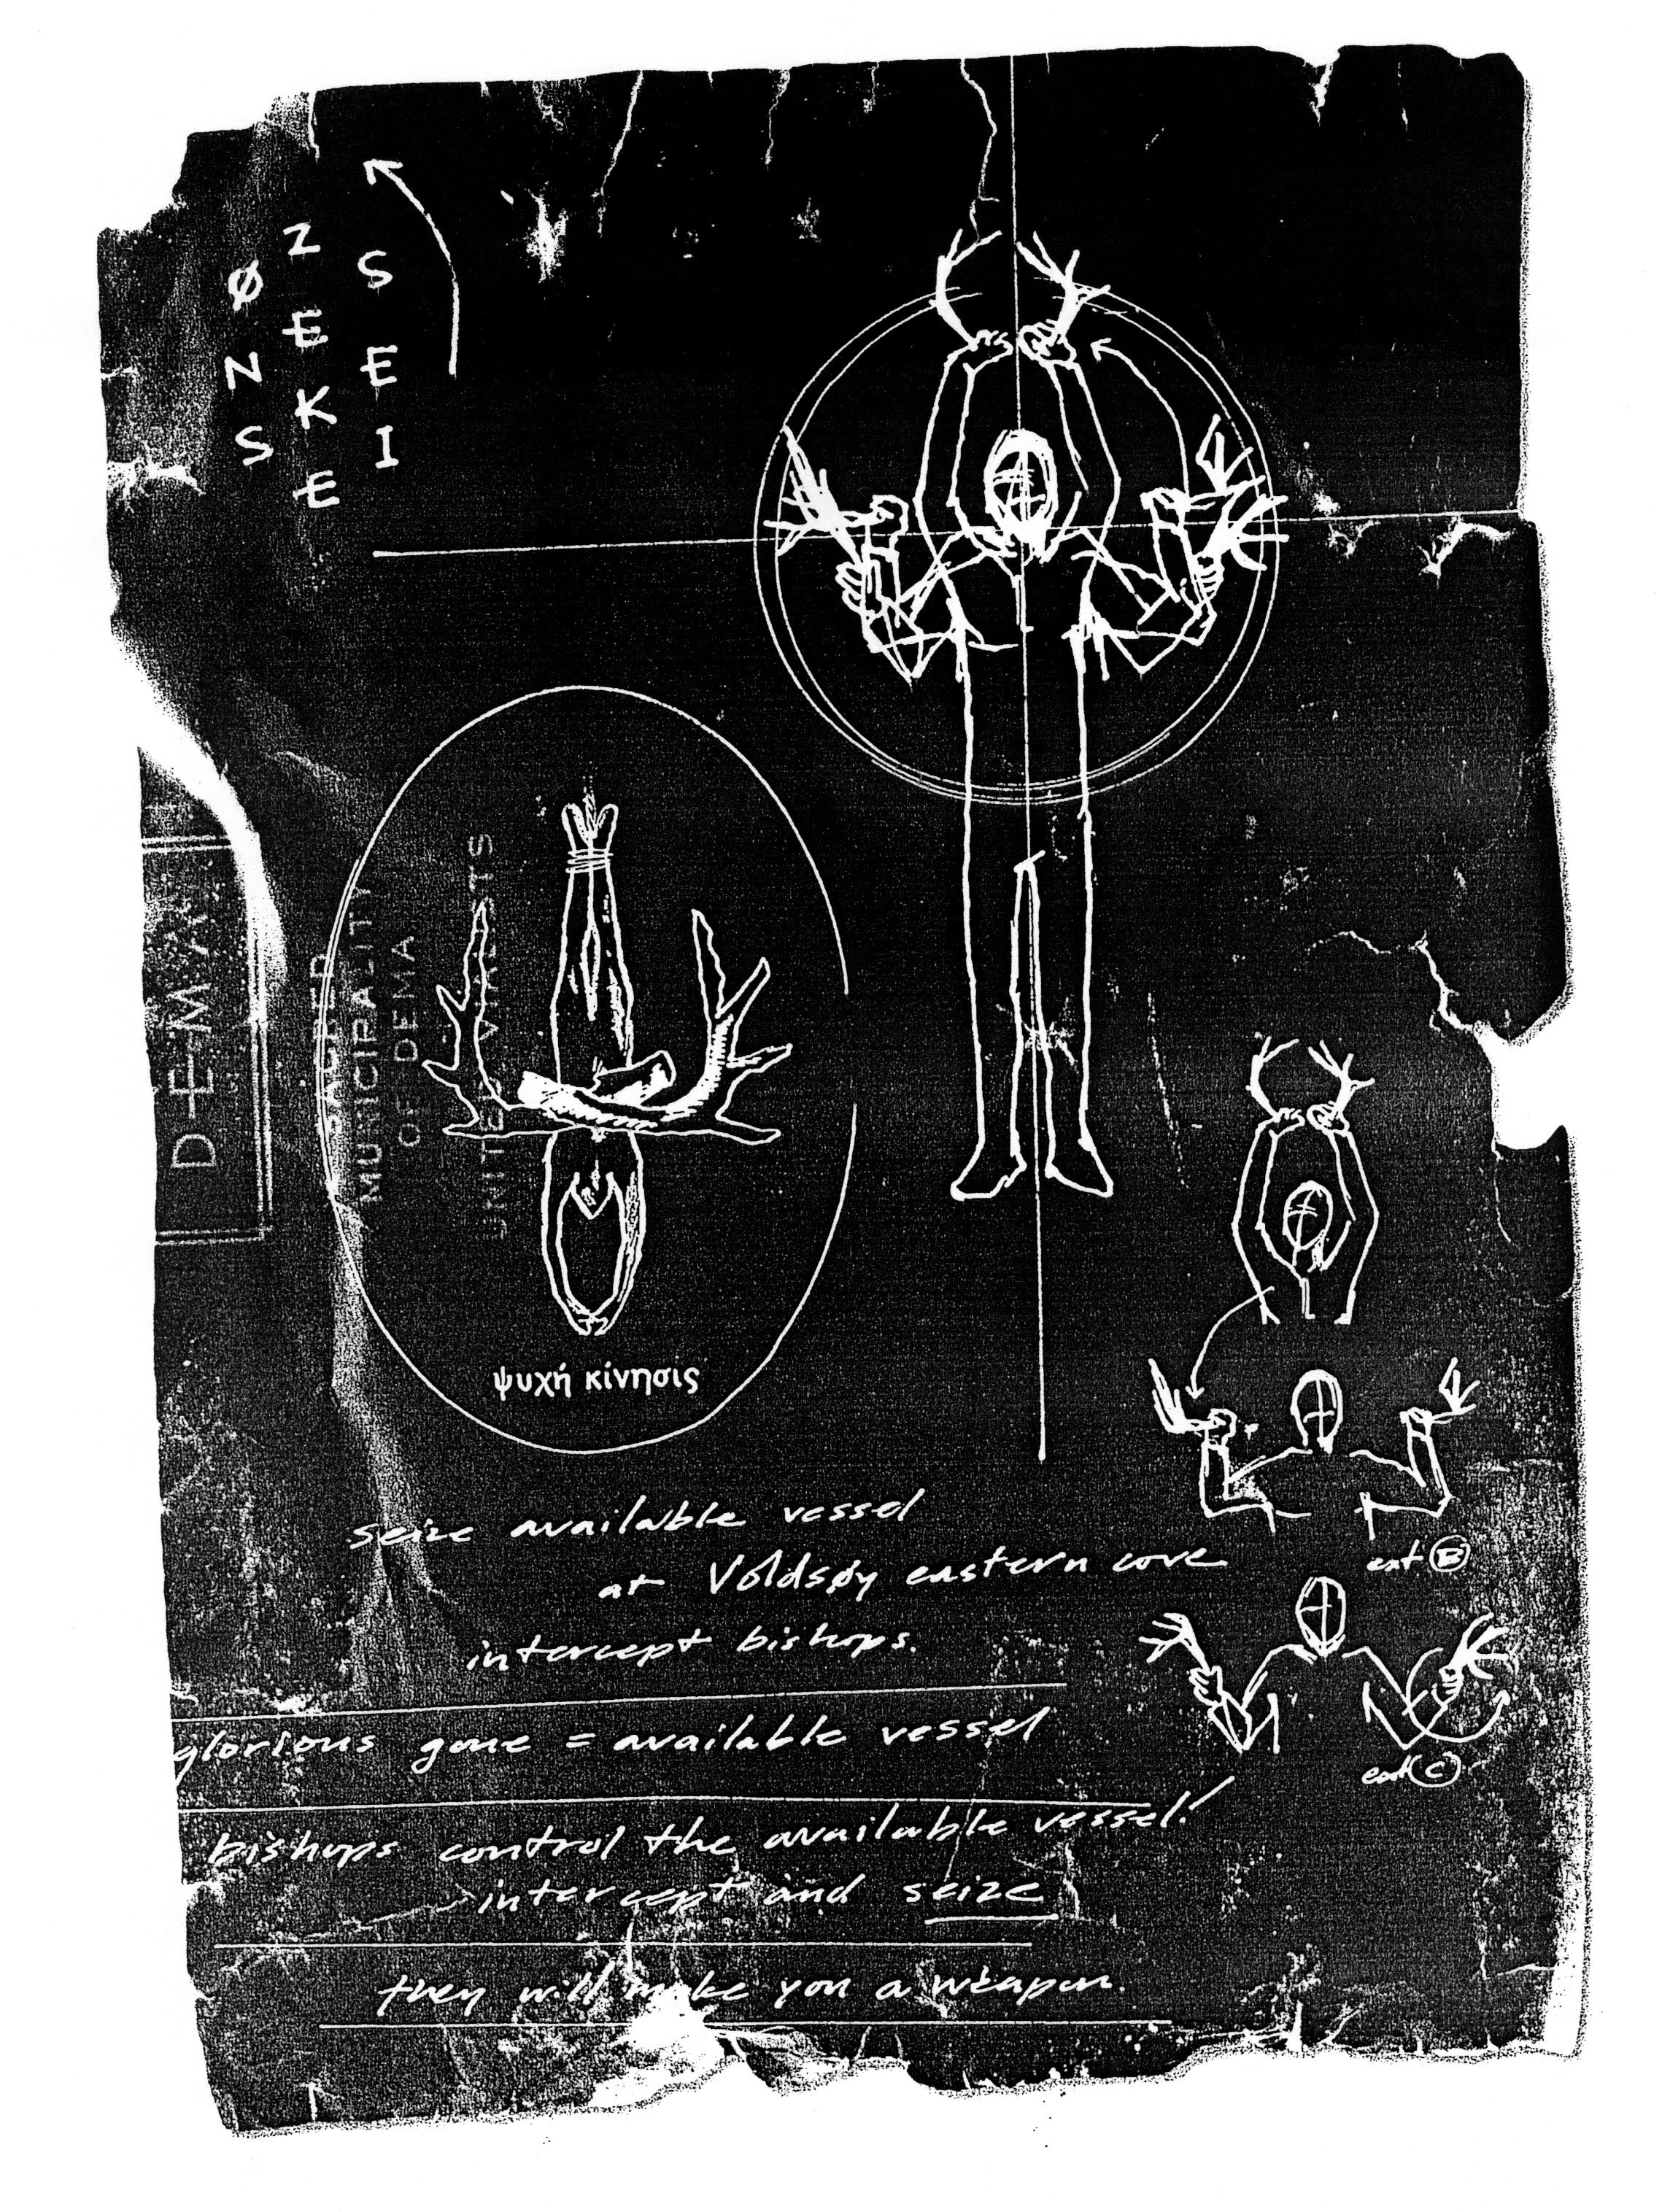 ØNS
ZEKE
SEI
D-E-M-A
SACRED
MUNICIPALITY
OF DEMA
VIALISTS
ψυχή κίνησις
ext. B
ext. C
seize available vessel
at Voldsøy eastern cove
intercept bishops.
glorious gone = available vessel
bishops control the available vessel!
intercept and seize
they will make you a weapon.